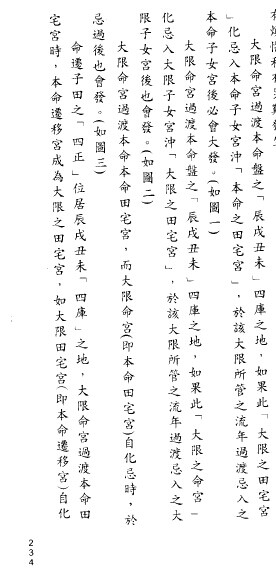 大限命宮過渡本命盤之「辰戌丑未」四庫之地，如果此「大限之田宅宮
」化忌入本命子女宮沖「本命之田宅宮」，於該大限所管之流年過渡忌入之
本命子女宮後必會大發。(如圖一)
大限命宮過渡本命盤之「辰戌丑未」四庫之地，如果此「大限之命宮－
化忌入大限子女宮沖「大限之田宅宮」，於該大限所管之流年過渡忌入之大
限子女宮後也會發。(如圖二)
大限命宮過渡本命本命田宅宮，而大限命宮(即本命田宅宮)自化忌時，於
忌過後也會發。(如圖三)
命遷子田之「四正」位居辰戌丑未「四庫」之地，大限命宮過渡本命田
宅宮時，本命遷移宮成為大限之田宅宮，如大限田宅宮(即本命遷移宮)自化
234